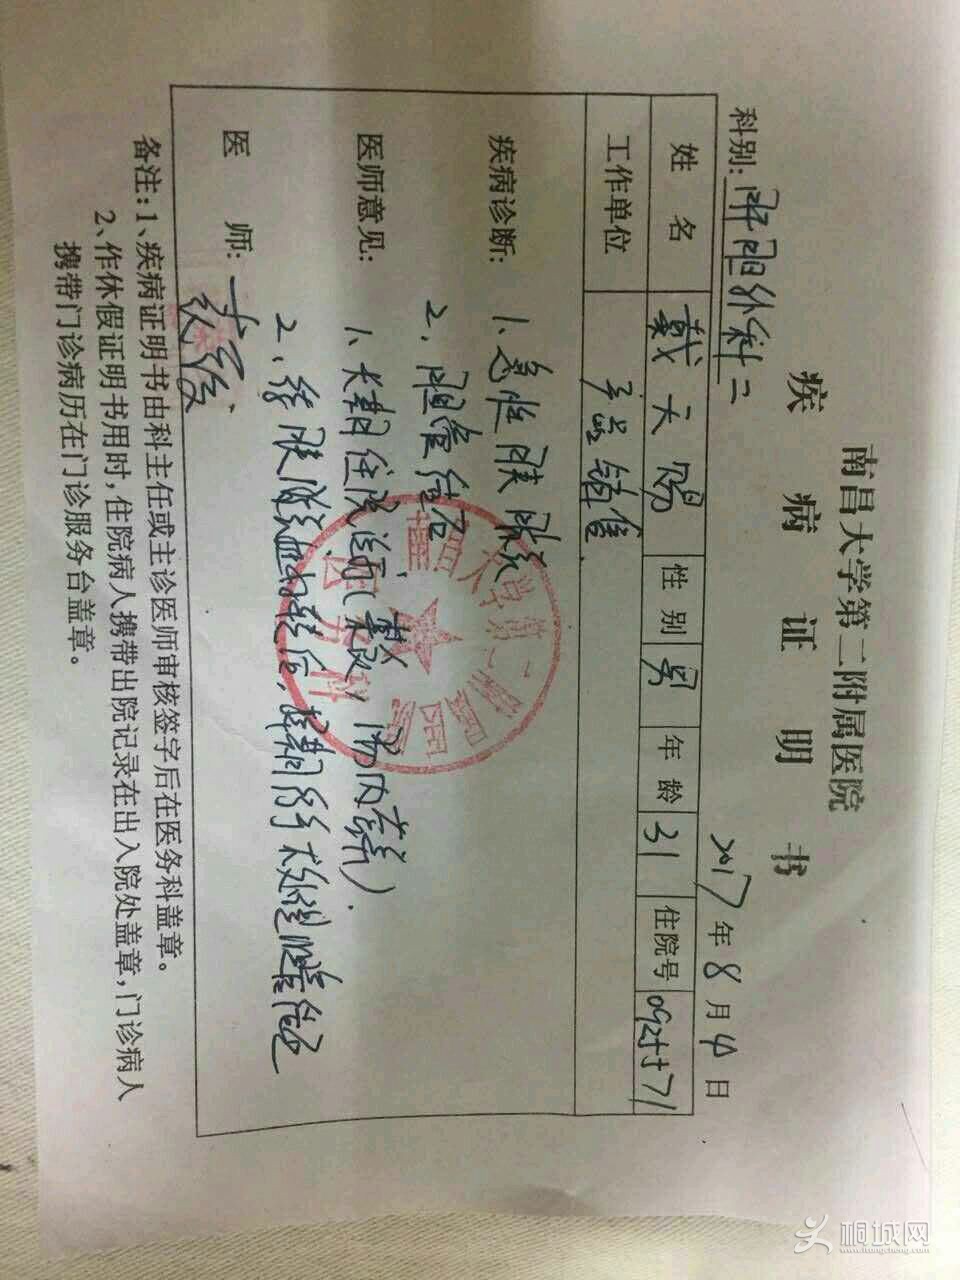 南昌大学第二附属医院
疾病证明书
科别:肝胆外科二 2017年8月4日
姓名 戴天赐 性别 男 年龄 31 住院号
工作单位 产品销售
疾病诊断: 1、急性胰腺炎
2、胆管结石
医师意见: 1、长期住院治疗
2、待胰腺炎
医师:
备注:1、疾病证明书由科主任或主诊医师审核签字后在医务科盖章。
2、作休假证明书用时,住院病人携带出院记录在出入院处盖章,门诊病人
携带门诊病历在门诊服务台盖章。
医务科
桐城网
www.itongcheng.com